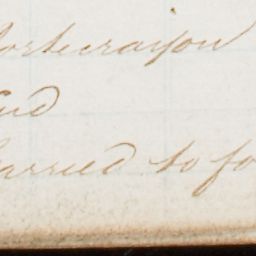 Portecrayon
and
Carried to fo